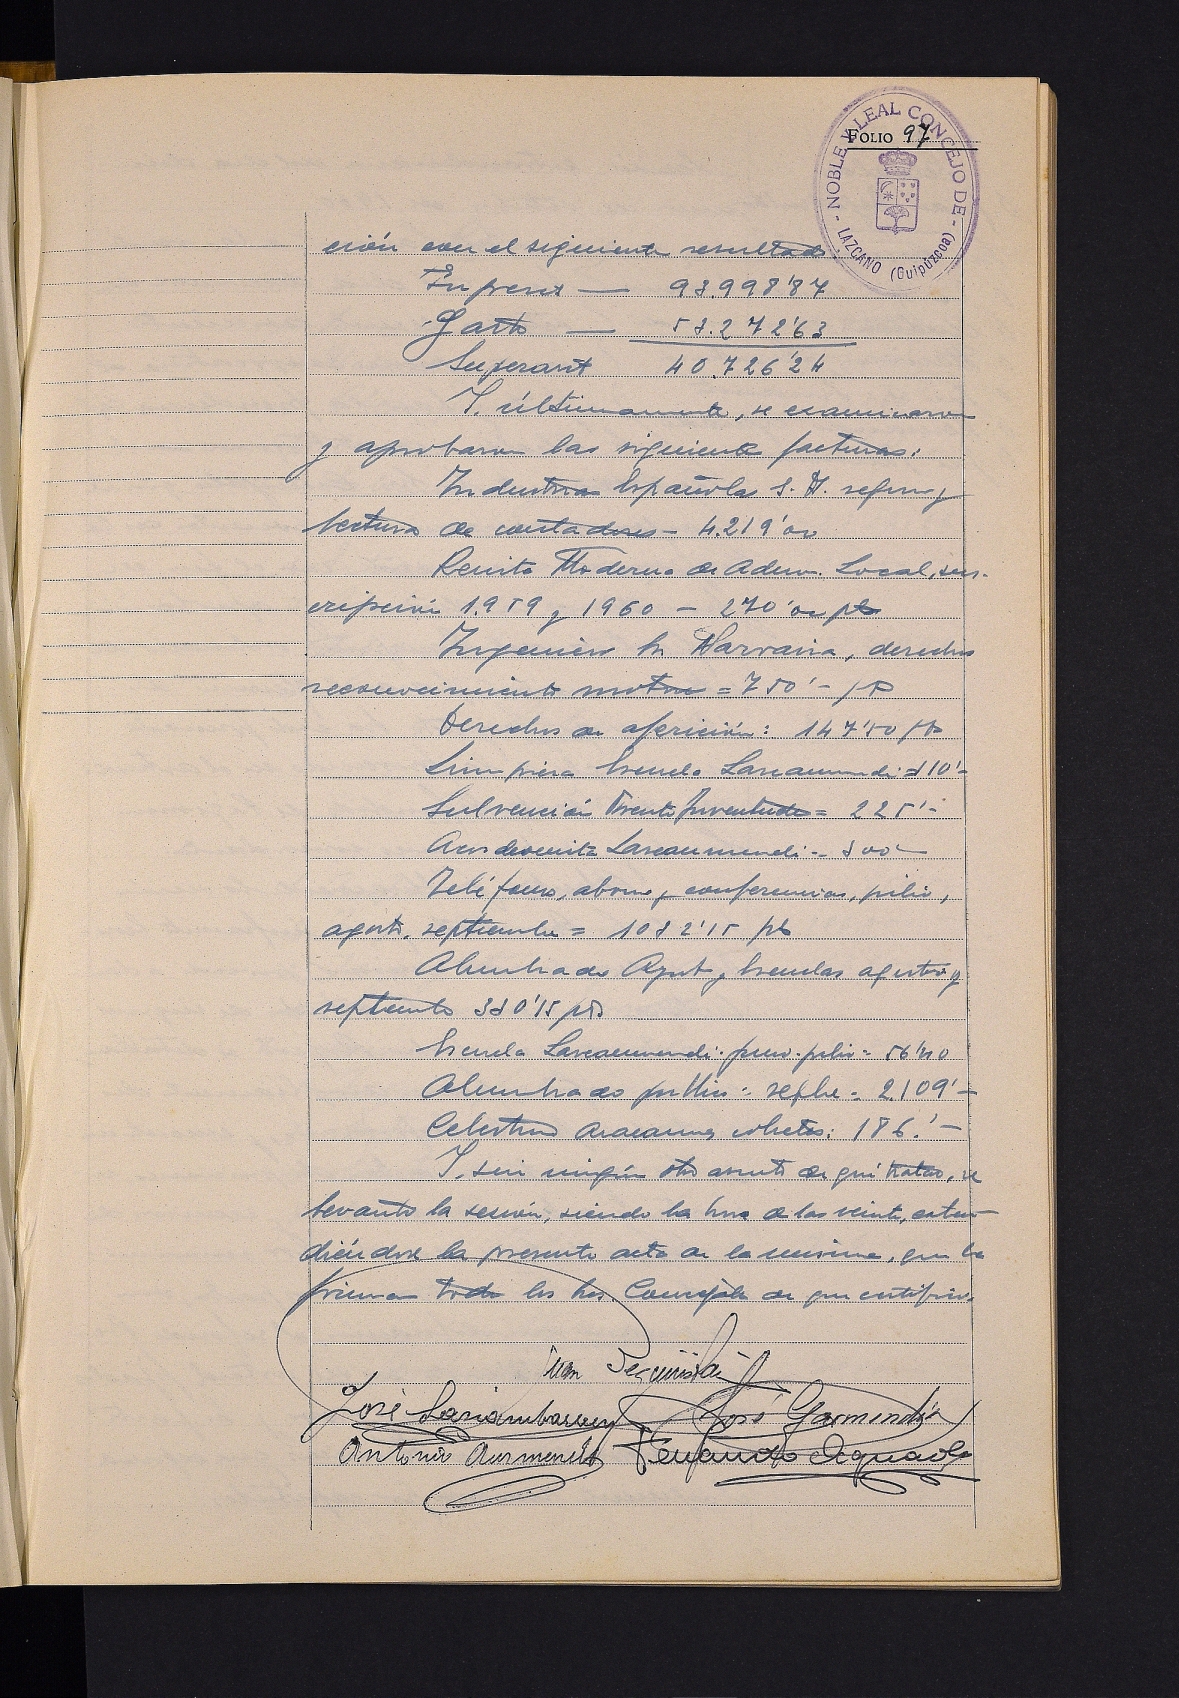 FOLIO 97
NOBLE Y LEAL CONCEJO DE
LAZCANO (Guipúzcoa)
ción con el siguiente resultado
Ingresos — 93.998'87
Gastos — 53.272'63
Superavit 40.726'24
Y, últimamente, se examinaron
y aprobaron las siguientes facturas:
Industrias Españolas S. A. y
lectura de contadores - 4.219'00
Revista Moderna de Admon. Local, sus-
cripción 1.959 y 1960 - 270'00 pts
Ingeniero Sr Narvaiza, derechos
reconocimiento motores = 750'- pts
Derechos de aferición: 147'50 pts
Limpieza Escuela Lazcaomendi = 310'-
Subvención Frente Juventudes = 225'-
Lazcaomendi - 300
Teléfonos, abono y conferencias, julio,
agosto, septiembre = 1082'15 pts
Alumbrado Aynt. y Escuelas agosto y
septiembre 330'15 pts
Escuela Lazcaomendi: junio - julio = 56'40
Alumbrado publico: sepbre = 2.109'-
Celestino cohetes: 186.'-
Y, sin ningún otro asunto de qué tratar, se
levantó la sesión, siendo la hora de las veinte, exten-
diéndose la presente acta de la misma, que la
firman todos los Sres. Concejales de que certifico.
José José Garmendia
Antonio Aurmendi Fernando